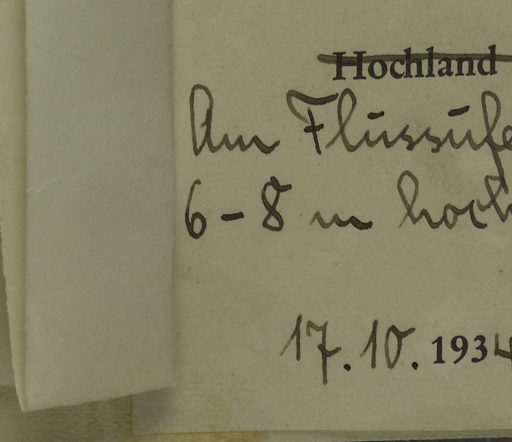 Hochland
Am Flussufe
6-8 m hoch
17.10.1934